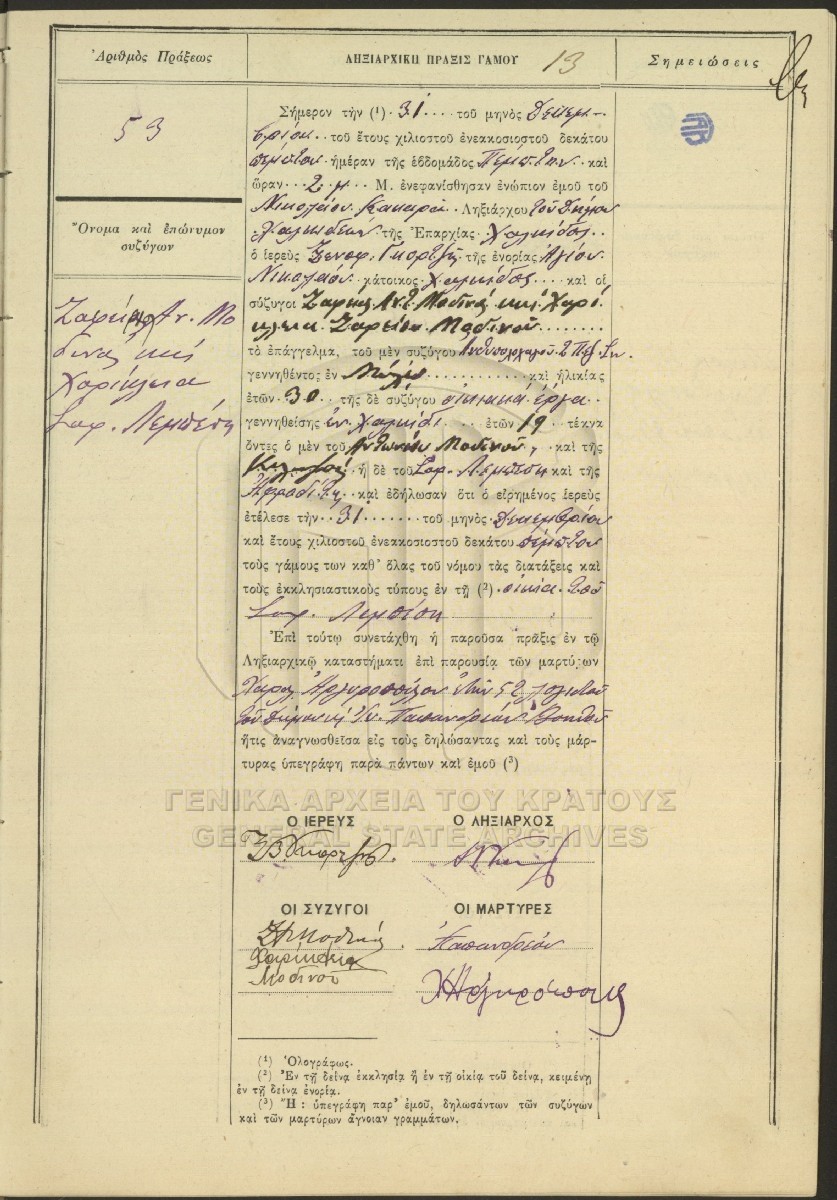 Ἀριθμὸς Πράξεως
ΛΗΞΙΑΡΧΙΚΗ ΠΡΑΞΙΣ ΓΑΜΟΥ 13
Σημειώσεις
53
Ὄνομα καὶ ἐπώνυμον
συζύγων
Αν. Μο
δινας καὶ
Χαρίκλεια
Λεμπέση
Σήμερον τὴν (¹) 31 τοῦ μηνὸς Δεκεμ-
βρίου τοῦ ἔτους χιλιοστοῦ ἐνεακοσιοστοῦ δεκάτου
πέμπτου ἡμέραν τῆς ἑβδομάδος Πέμπτην καὶ
ὥραν 2 μ. Μ. ἐνεφανίσθησαν ἐνώπιον ἐμοῦ τοῦ
Νικολάου Κακαρᾶ Ληξιάρχου τοῦ Δήμου
Χαλκιδέων τῆς Ἐπαρχίας Χαλκίδος
ὁ ἱερεὺς Γκορτζῆς τῆς ἐνορίας Ἁγίου
Νικολάου κάτοικος Χαλκίδος καὶ οἱ
σύζυγοι Μοδινας καὶ Χαρί
κλεια Μοδινοῦ
τὸ ἐπάγγελμα, τοῦ μὲν συζύγου Ἀνθυπολοχαγοῦ
γεννηθέντος ἐν καὶ ἡλικίας
ἐτῶν 30 τῆς δὲ συζύγου οἰκιακὰ ἔργα
γεννηθείσης ἐν Χαλκίδι ἐτῶν 19 τέκνα
ὄντες ὁ μὲν τοῦ Ἀντωνίου Μοδινοῦ, καὶ τῆς
ἡ δὲ τοῦ Λεμπέση καὶ τῆς
Ἀφροδίτης καὶ ἐδήλωσαν ὅτι ὁ εἰρημένος ἱερεὺς
ἐτέλεσε τὴν 31 τοῦ μηνὸς Δεκεμβρίου
καὶ ἔτους χιλιοστοῦ ἐνεακοσιοστοῦ δεκάτου πέμπτου
τοὺς γάμους των καθ' ὅλας τοῦ νόμου τὰς διατάξεις καὶ
τοὺς ἐκκλησιαστικοὺς τύπους ἐν τῇ (²) οἰκία τοῦ
Λεμπέση
Ἐπὶ τούτῳ συνετάχθη ἡ παροῦσα πρᾶξις ἐν τῷ
Ληξιαρχικῷ καταστήματι ἐπὶ παρουσίᾳ τῶν μαρτύρων
Χαραλ. Ἀργυροπούλου ἐτῶν 52
τοῦ Δήμου καὶ Παπανδρέου
ἥτις ἀναγνωσθεῖσα εἰς τοὺς δηλώσαντας καὶ τοὺς μάρ-
τυρας ὑπεγράφη παρὰ πάντων καὶ ἐμοῦ (³)
ΓΕΝΙΚΑ ΑΡΧΕΙΑ ΤΟΥ ΚΡΑΤΟΥΣ
GENERAL STATE ARCHIVES
Ο ΙΕΡΕΥΣ
Ο ΛΗΞΙΑΡΧΟΣ
ΟΙ ΣΥΖΥΓΟΙ
ΟΙ ΜΑΡΤΥΡΕΣ
Παπανδρέου
Χαρίκλεια
Μοδινοῦ
(¹) Ὁλογράφως.
(²) Ἐν τῇ δεῖνα ἐκκλησίᾳ ἢ ἐν τῇ οἰκίᾳ τοῦ δεῖνα, κειμένῃ
ἐν τῇ δεῖνα ἐνορίᾳ.
(³) Ἤ : ὑπεγράφη παρ' ἐμοῦ, δηλωσάντων τῶν συζύγων
καὶ τῶν μαρτύρων ἄγνοιαν γραμμάτων.